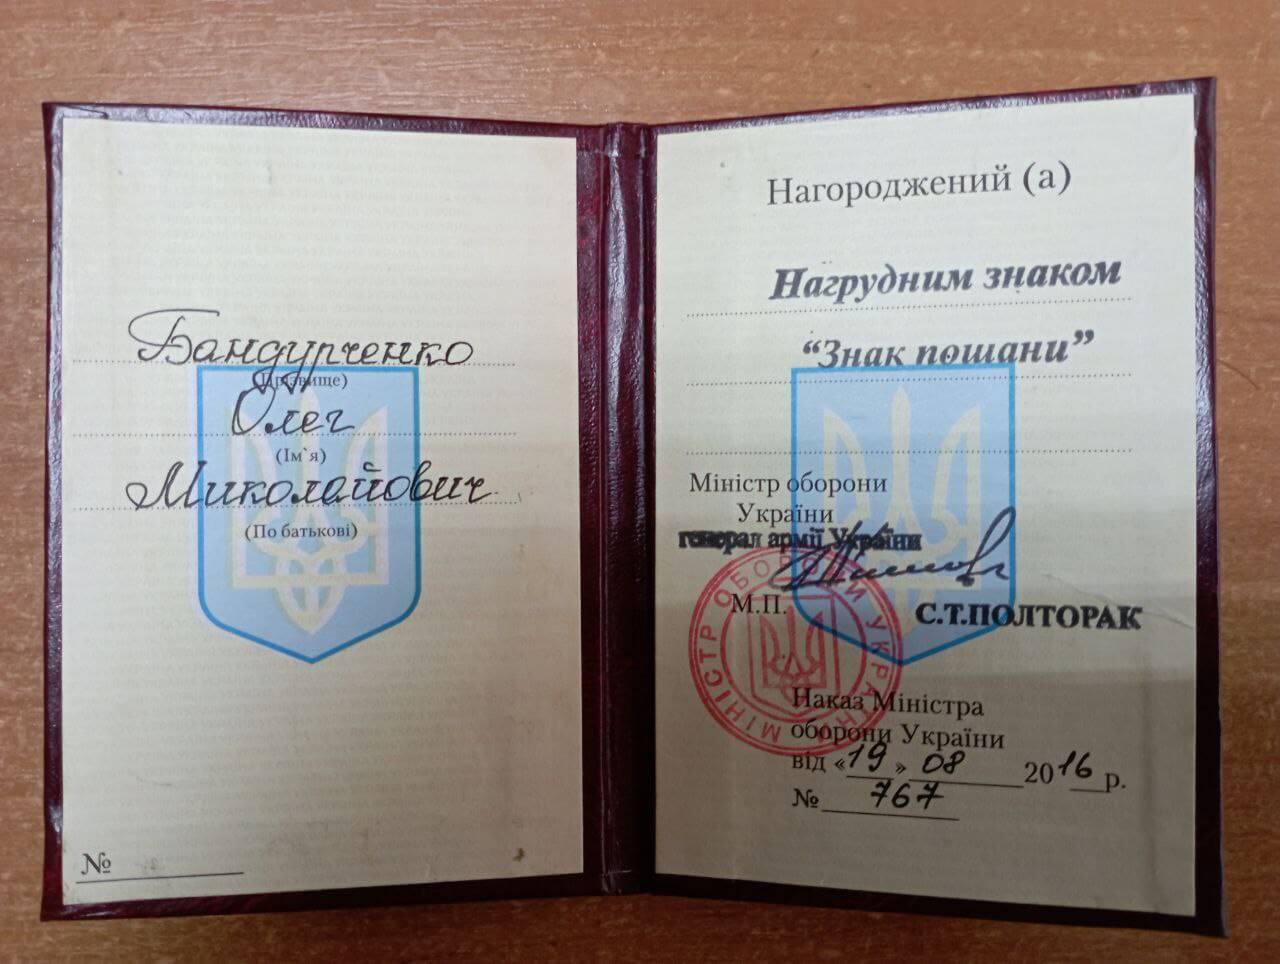 Бандурченко
(Прізвище)
Олег
(Ім`я)
Миколайович
(По батькові)
№
Нагороджений (а)
Нагрудним знаком
“Знак пошани”
Міністр оборони
України
генерал армії України
М.П.
С.Т.ПОЛТОРАК
МІНІСТР ОБОРОНИ УКРАЇНИ
Наказ Міністра
оборони України
від «19» 08 2016 р.
№ 767